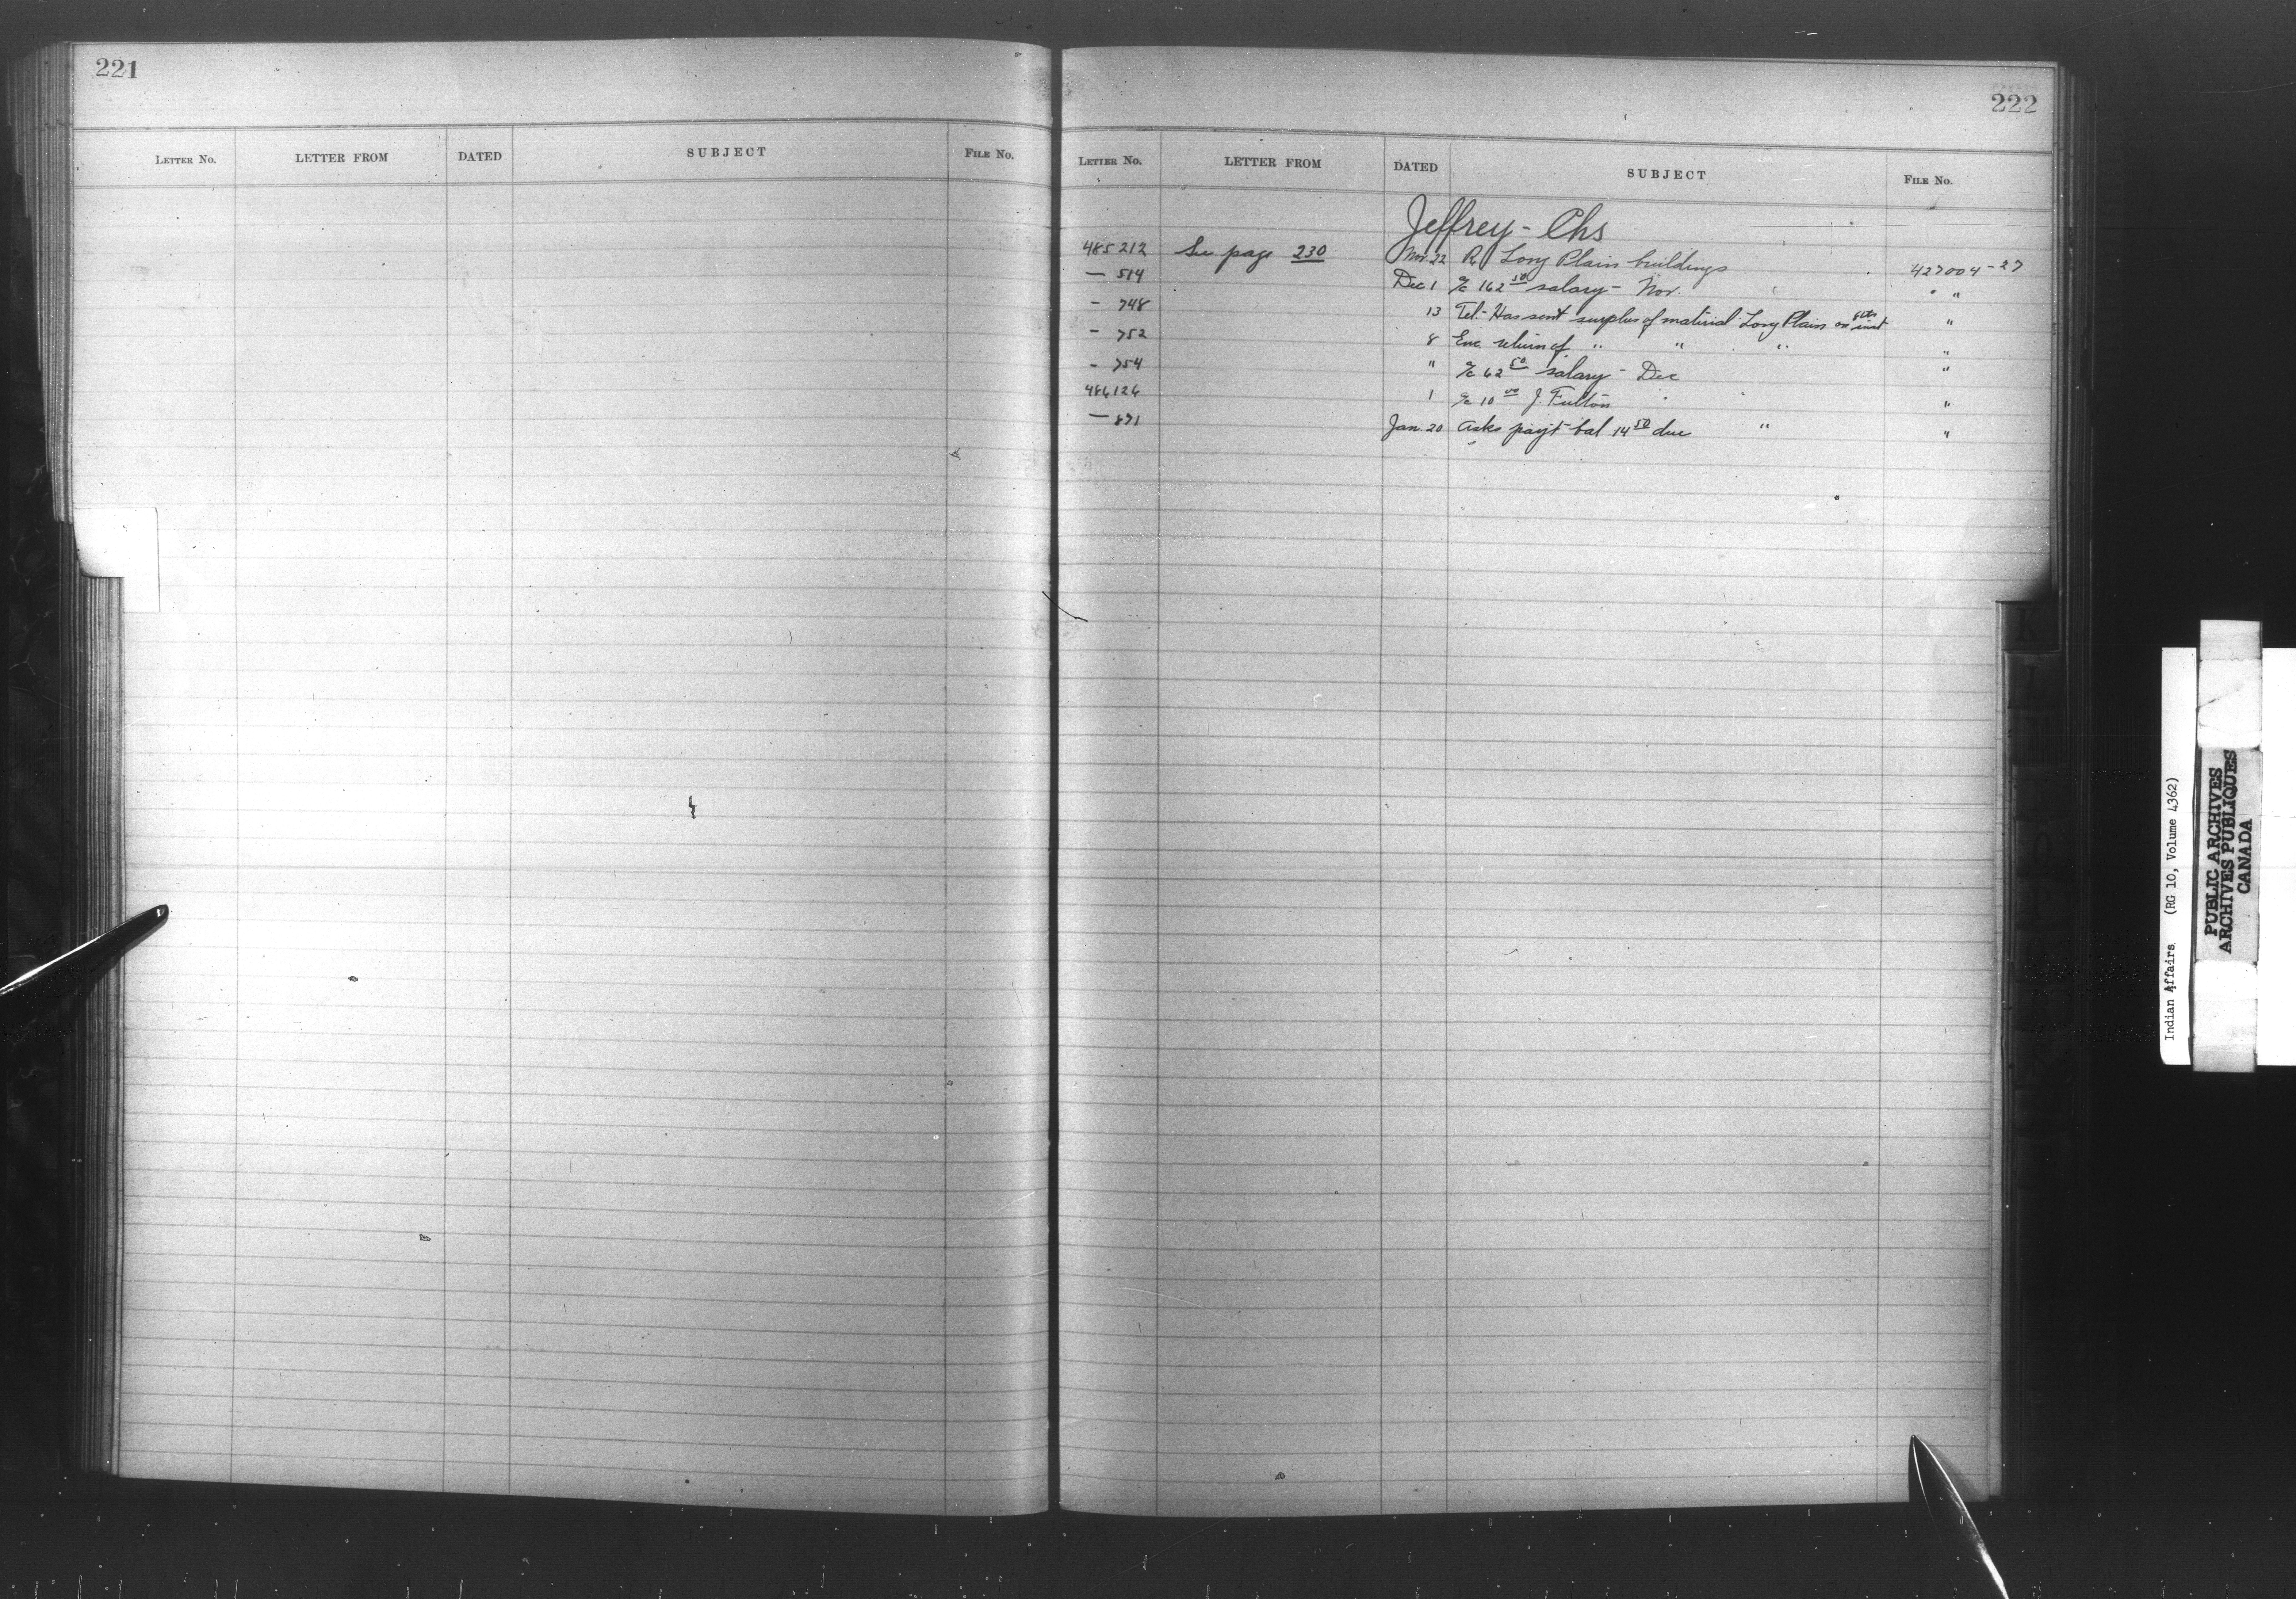 221
LETTER NO. LETTER FROM DATED SUBJECT FILE NO.
222
LETTER NO. LETTER FROM DATED SUBJECT FILE NO.
Jeffrey - Chs
485212 See page 230 Nov. 22 Re Long Plain buildings 427004-27
— 514 Dec 1 a/c 162 50 salary - Nov. " "
- 748 13 Tel. - Has sent surplus of material Long Plain on 8th inst "
- 752 8 Enc. return of " " " "
- 754 " a/c 62 50 salary - Dec "
486126 1 a/c 10 00 J. Fulton "
— 871 Jan. 20 Asks payt bal 14 50 due " "
Indian Affairs. (RG 10, Volume 4362)
PUBLIC ARCHIVES
ARCHIVES PUBLIQUES
CANADA